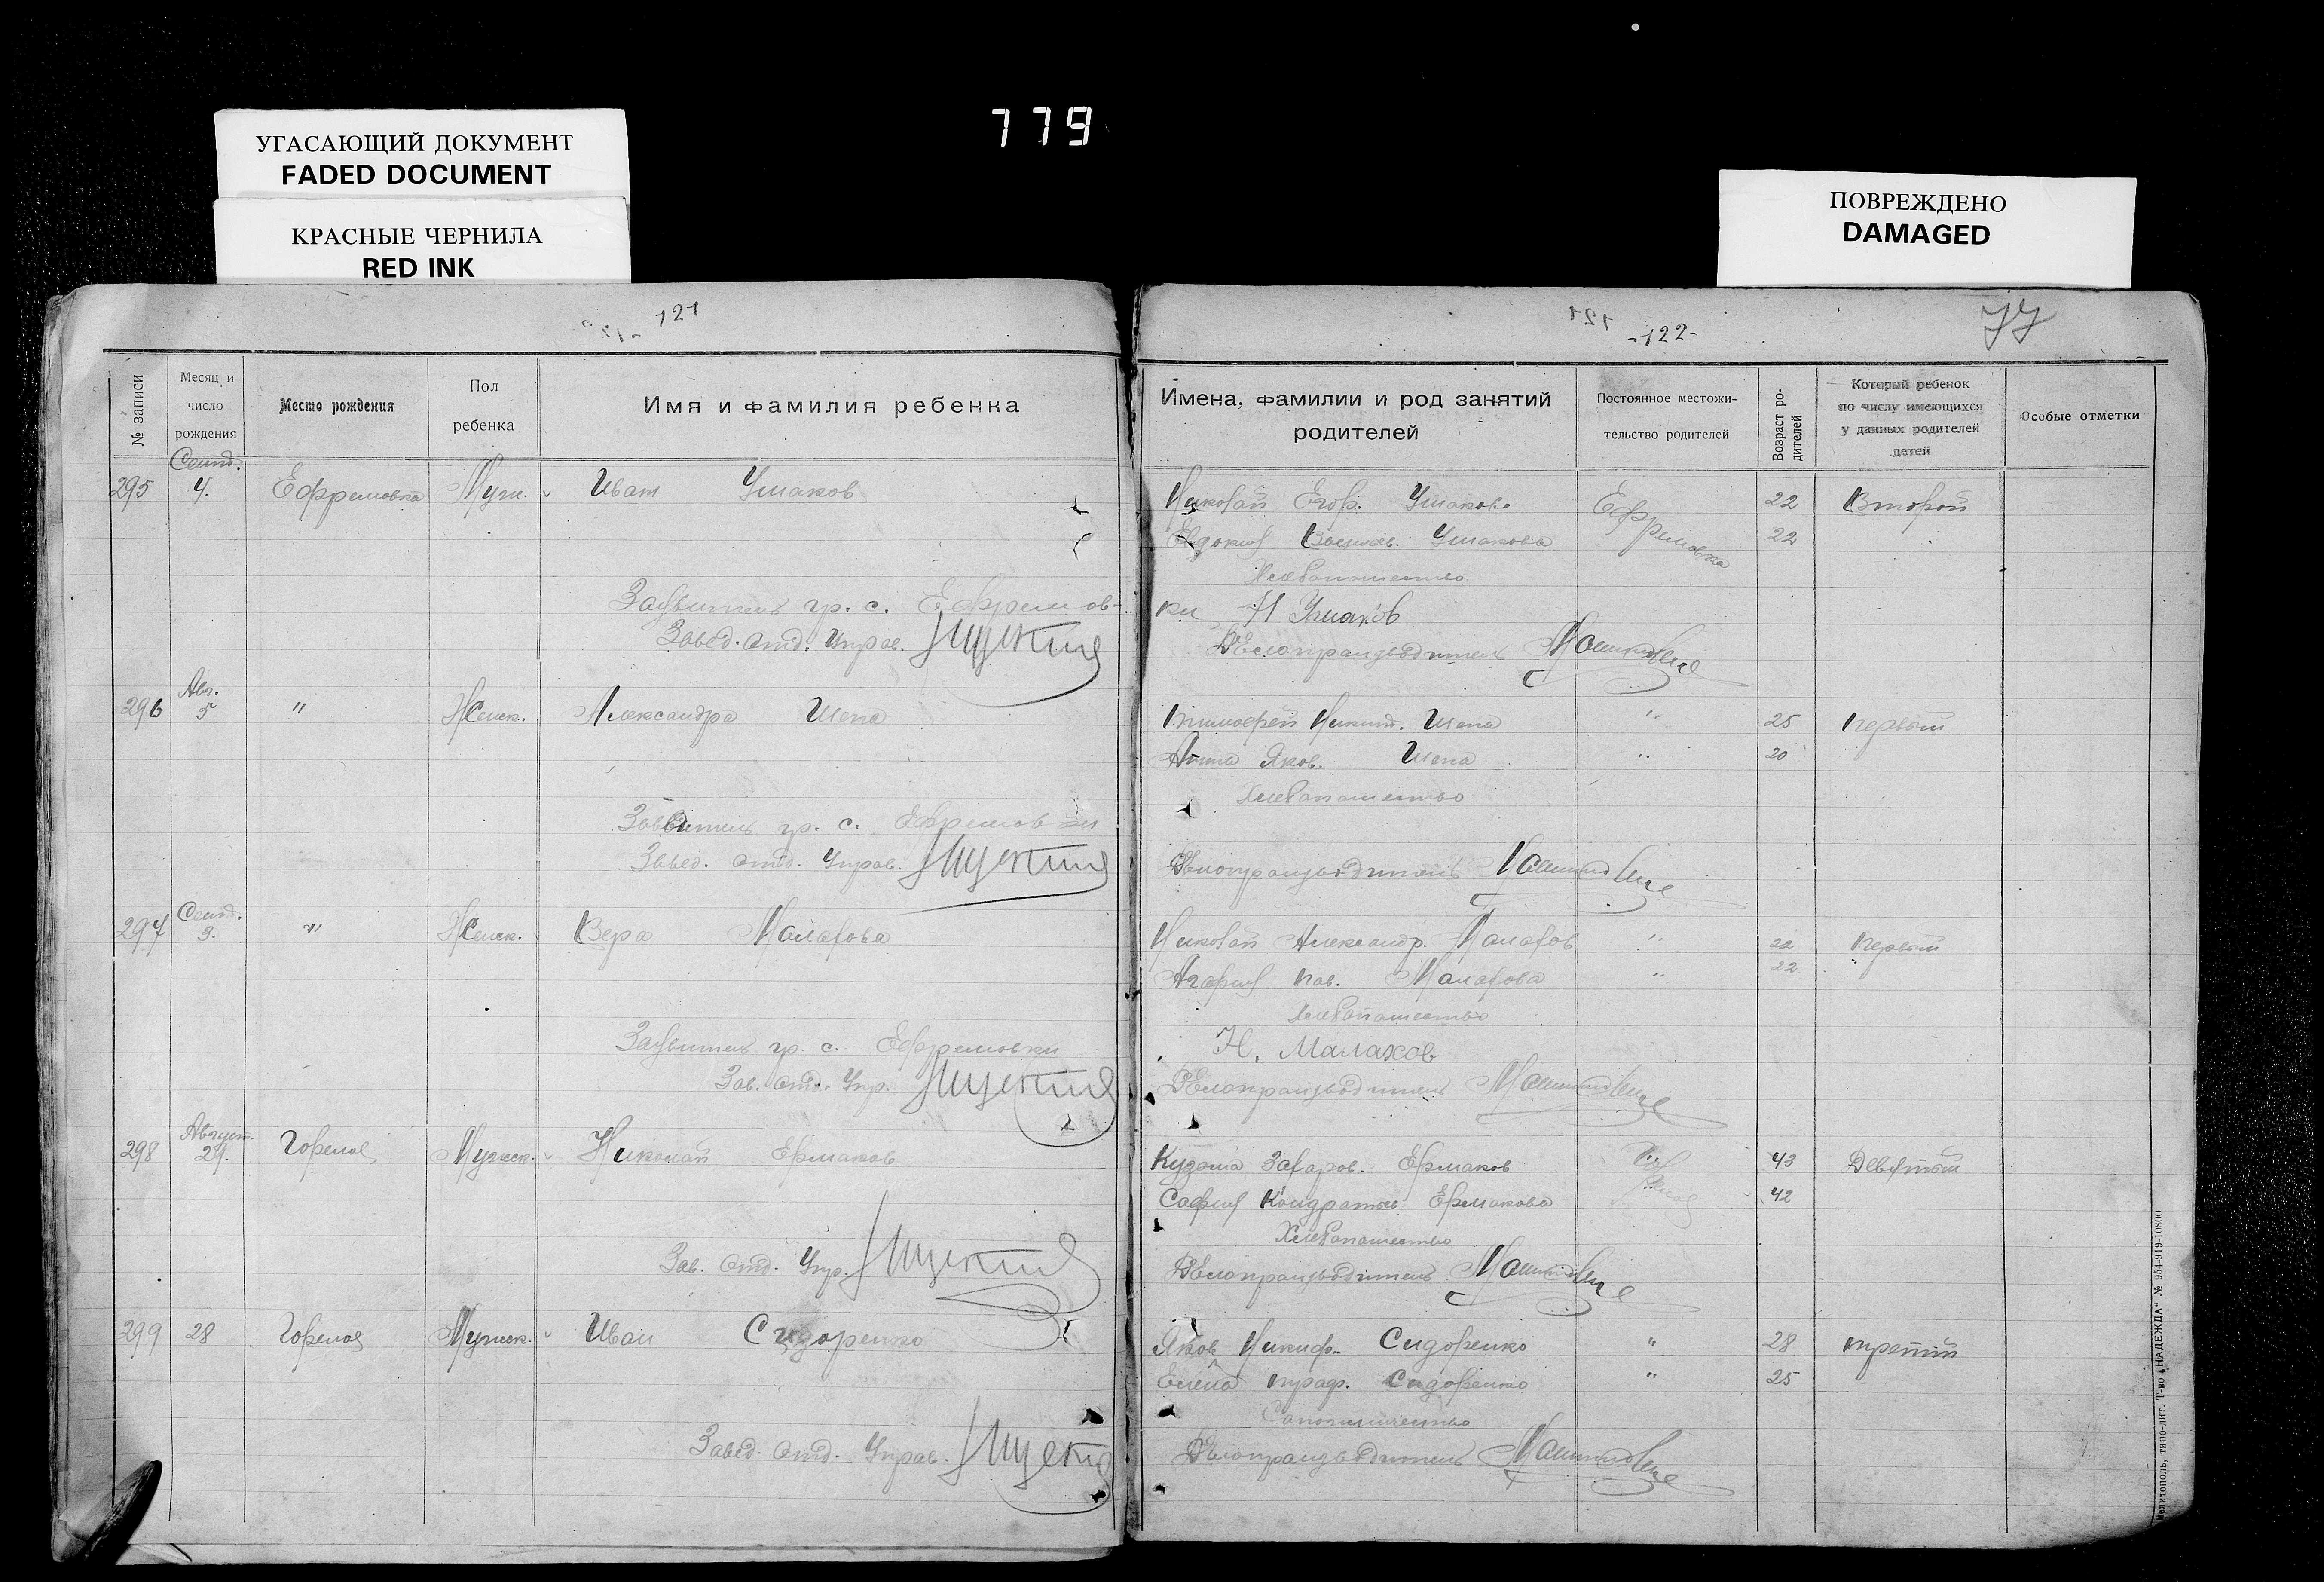 779
УГАСАЮЩИЙ ДОКУМЕНТ
FADED DOCUMENT
КРАСНЫЕ ЧЕРНИЛА
RED INK
ПОВРЕЖДЕНО
DAMAGED
121
№ записи
Месяц и число рождения
Место рождения
Пол ребенка
Имя и фамилия ребенка
Сент.
295 4. Ефремовка Муж. Иван Ушаков
Заявитель гр. с. Ефремов-
Завед. Отд. Управ.
Авг.
296 5 " Женск. Александра Шепа
гр. с. Ефремовки
Завед. Отд. Управ.
Сент.
297 3. " Женск. Вера Малахова
Заявитель гр. с. Ефремовки
Зав. Отд. Упр.
Август.
298 29. Горелое Мужск. Николай Ермаков
Зав. Отд. Упр.
299 28 Горелое Мужск. Иван Сидоренко
Завед. Отд. Управ.
-122-
77
Имена, фамилии и род занятий родителей
Постоянное местожи-
тельство родителей
Возраст ро-
дителей
Который ребенок
по числу имеющихся
у данных родителей
детей
Особые отметки
Николай Егор. Ушаков Ефремовка 22 Второй
Евдокия Васильев. Ушакова 22
Хлебопашество
ки Н Ушаков
Делопроизводитель
Тимофей Никит. Шепа " 25 первый
Анна Яков. Шепа " 20
Хлебопашество
Делопроизводитель
Николай Александр. Малахов " 22 первый
Агафия Пав. Малахова " 22
Хлебопашество
Н. Малахов
Делопроизводитель
Кузьма Захаров. Ермаков 43 Девятый
София Кондратьев Ермакова 42
Хлебопашество
Делопроизводитель
Яков Никиф. Сидоренко " 28 третий
Елена Сидоренко " 25
Делопроизводитель
Мелитополь, типо-лит. Т-во „НАДЕЖДА“ № 954-919-10800